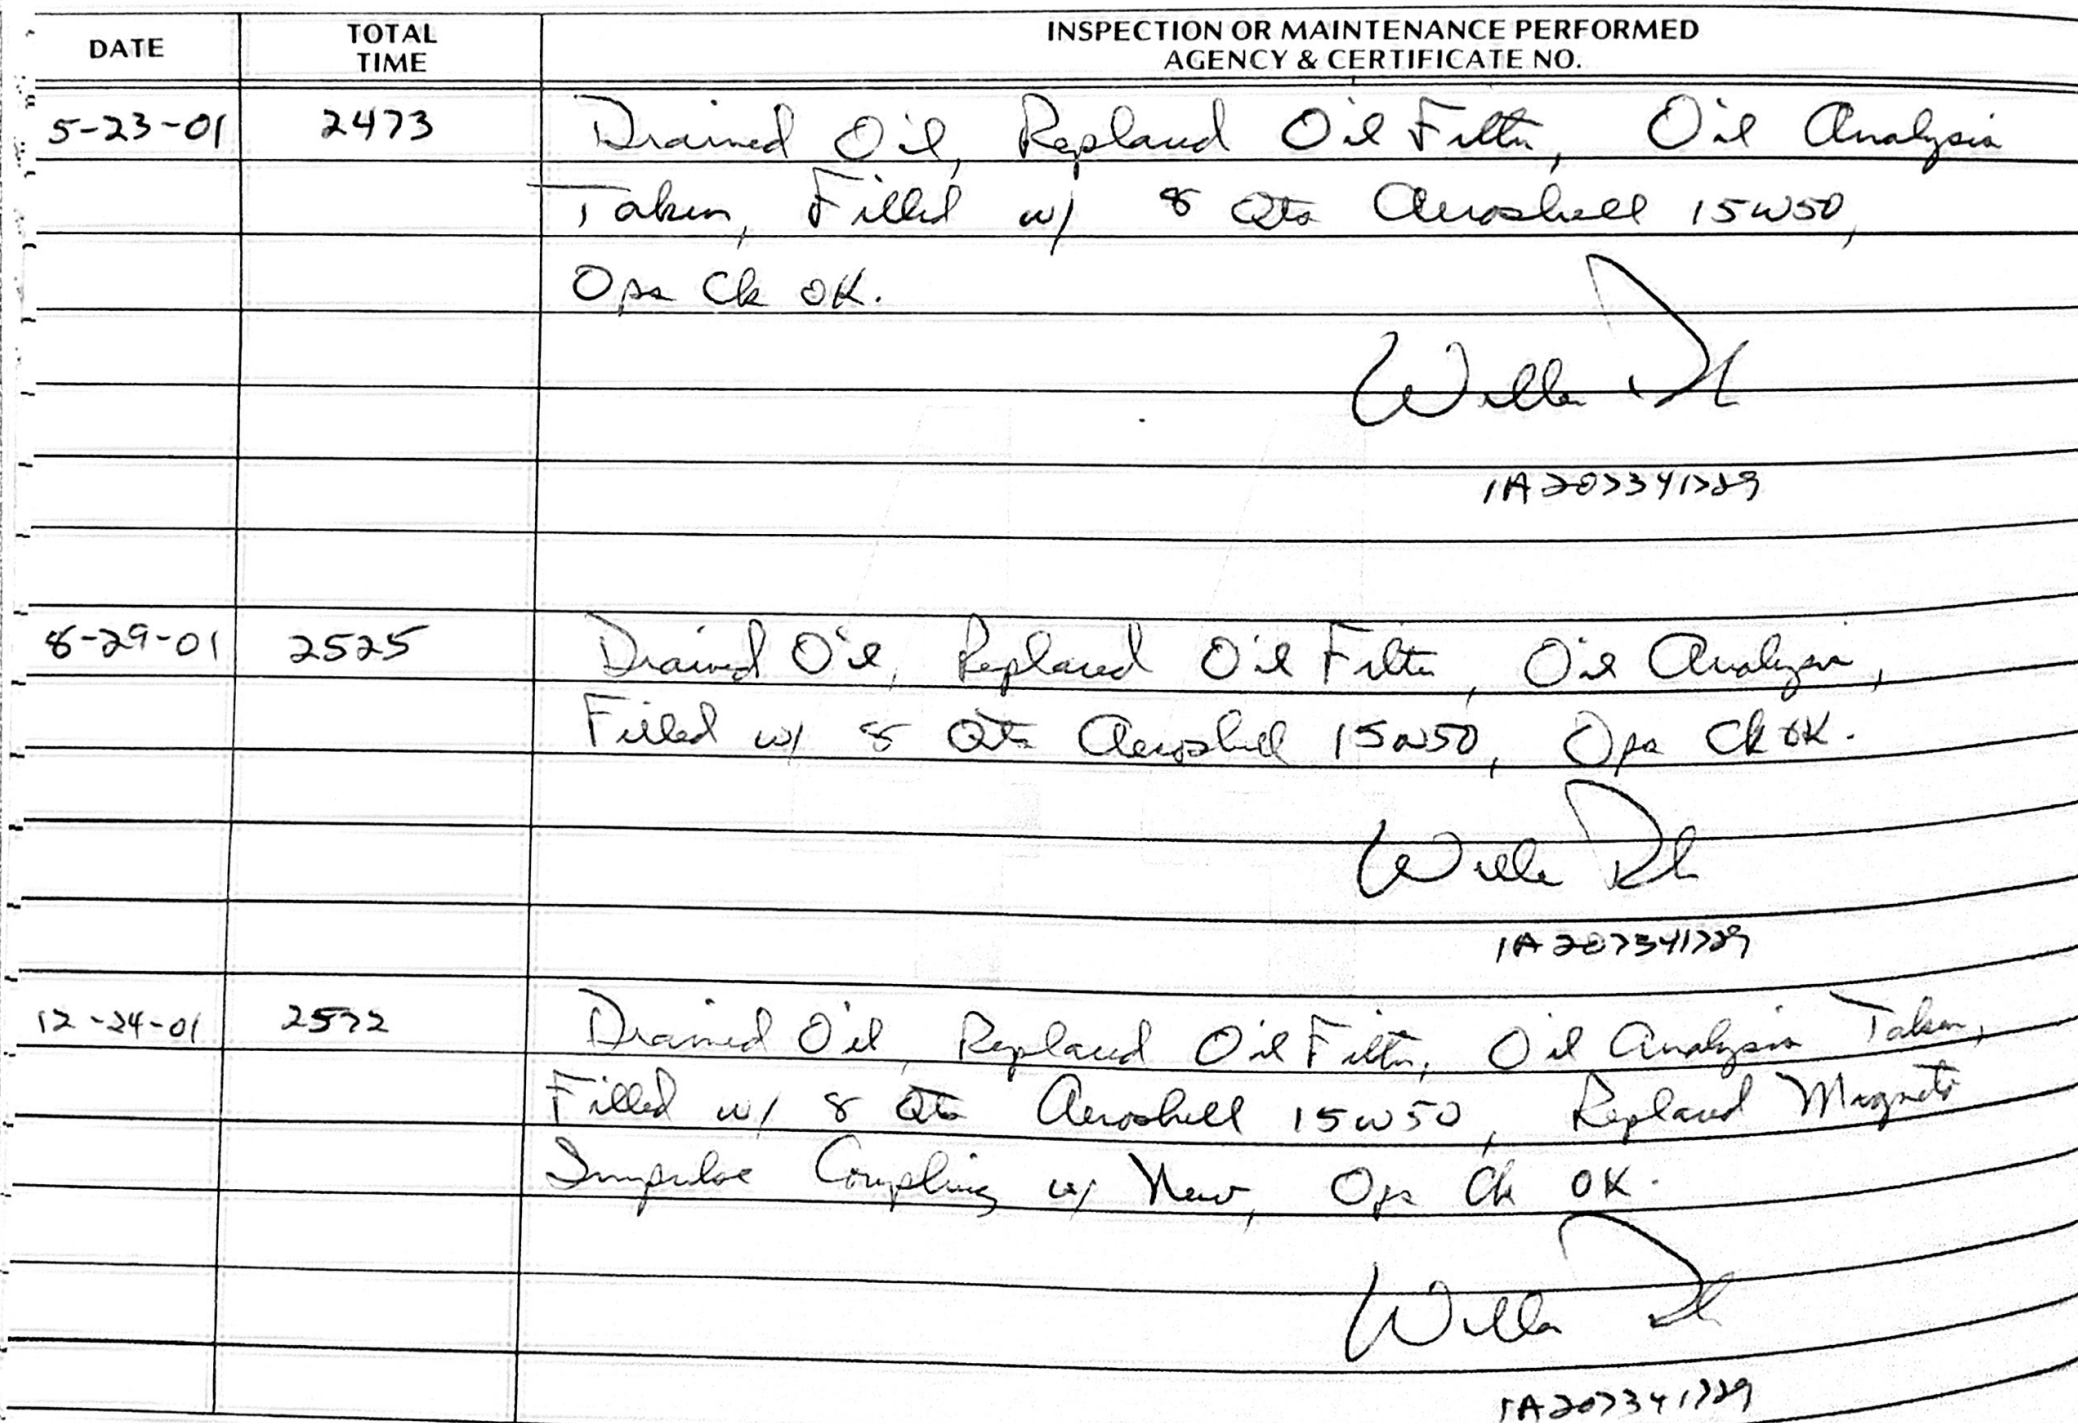 DATE
TOTAL TIME
INSPECTION OR MAINTENANCE PERFORMED
AGENCY & CERTIFICATE NO.
5-23-01 2473 Drained Oil, Replaced Oil Filter, Oil Analysis
Taken, Filled w/ 8 Qts Aeroshell 15W50,
Ops Ck OK.
IA207341729
8-29-01 2525 Drained Oil, Replaced Oil Filter, Oil Analysis,
Filled w/ 8 Qts Aeroshell 15W50, Ops Ck OK.
IA207341729
12-24-01 2572 Drained Oil, Replaced Oil Filter, Oil Analysis Taken,
Filled w/ 8 Qts Aeroshell 15W50, Replaced Magneto
Impulse Coupling w/ New, Ops Ck OK.
IA207341729